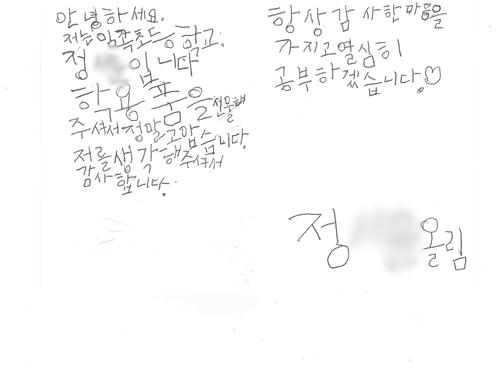 안녕하세요.
저는 임곡초등학교
정 입니다
학용품을 선물해
주셔서 정말 고맙습니다.
저를 생각해 주셔서
감사합니다.
항상 감사한 마음을
가지고 열심히
공부하겠습니다.♡
정 올림